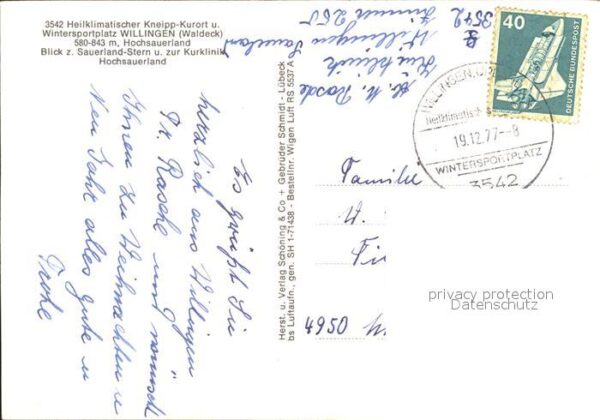 3542 Heilklimatischer Kneipp-Kurort u.
Wintersportplatz WILLINGEN (Waldeck)
580-843 m, Hochsauerland
Blick z. Sauerland-Stern u. zur Kurklinik
Hochsauerland
Es grüßt Sie
herzlich aus Willingen
Dr. Rasche und wünscht
Ihnen zu Weihnachten u
Neu Jahr alles gute u
Frohe
Herst. u. Verlag Schöning & Co + Gebrüder Schmidt · Lübeck
bs Luftaufn., gen. SH 1-71438 - Bestellnr. Wigen Luft RS 5537 A
Kurklinik
Willingen Sauerland
3542
Zimmer 260
40
DEUTSCHE BUNDESPOST
WILLINGEN, U
Heilklimatisch
19.12.77-8
WINTERSPORTPLATZ
3542
Familie
W.
4950
privacy protection
Datenschutz